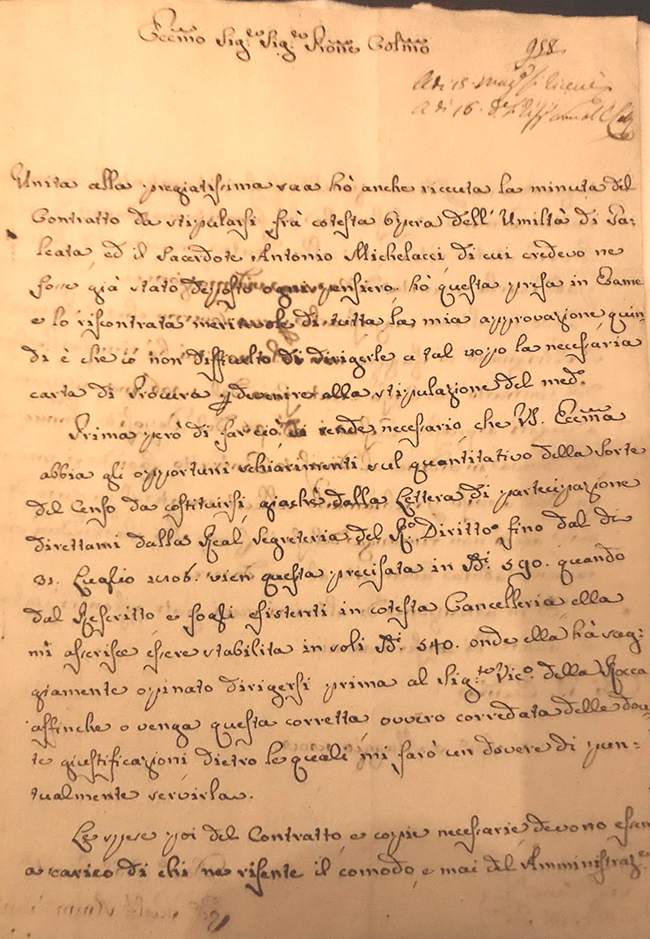 Eccmo Sigre Sigre Prone Colmo
988
Adi 15. Magº
A di 16. dº
Unita alla pregiatissima sua hò anche riceuta la minuta del
Contratto da stipularsi frà cotesta Opera dell'Umiltà di Ga-
leata, ed il Sacerdote Antonio Michelacci di cui credevo ne
fosse già stato deposto ogni pensiero, hò questa presa in Esame
e lo riscontrata meritevole di tutta la mia approvazione, quin-
di è che io non difficulto di dirigerle a tal uopo la necessaria
carta di Procura p devenire alla stipulazione del medº.
Prima però di far ciò, si rende necessario, che VS. Eccma
abbia gli opportuni schiarimenti sul quantitativo della Sorte
del Censo da costituirsi, giachè dalla Lettera di partecipazione
direttami dalla Real Segreteria del Rº. Diritto fino dal dì
31. Luglio 1806. vien questa precisata in . 590. quando
dal Rescritto e fogli esistenti in cotesta Cancelleria ella
mi asserisce essere stabilita in soli . 540. onde ella hà sag-
giamente opinato dirigersi prima al Sigre Vicº. della Rocca
affinche o venga questa corretta, ovvero corredata delle dovu-
te giustificazioni dietro le quali mi farò un dovere di pun-
tualmente servirla.
Le spese poi del Contratto, e copie necessarie, devono esser
a carico di chi ne risente il comodo, e mai del Amministraz